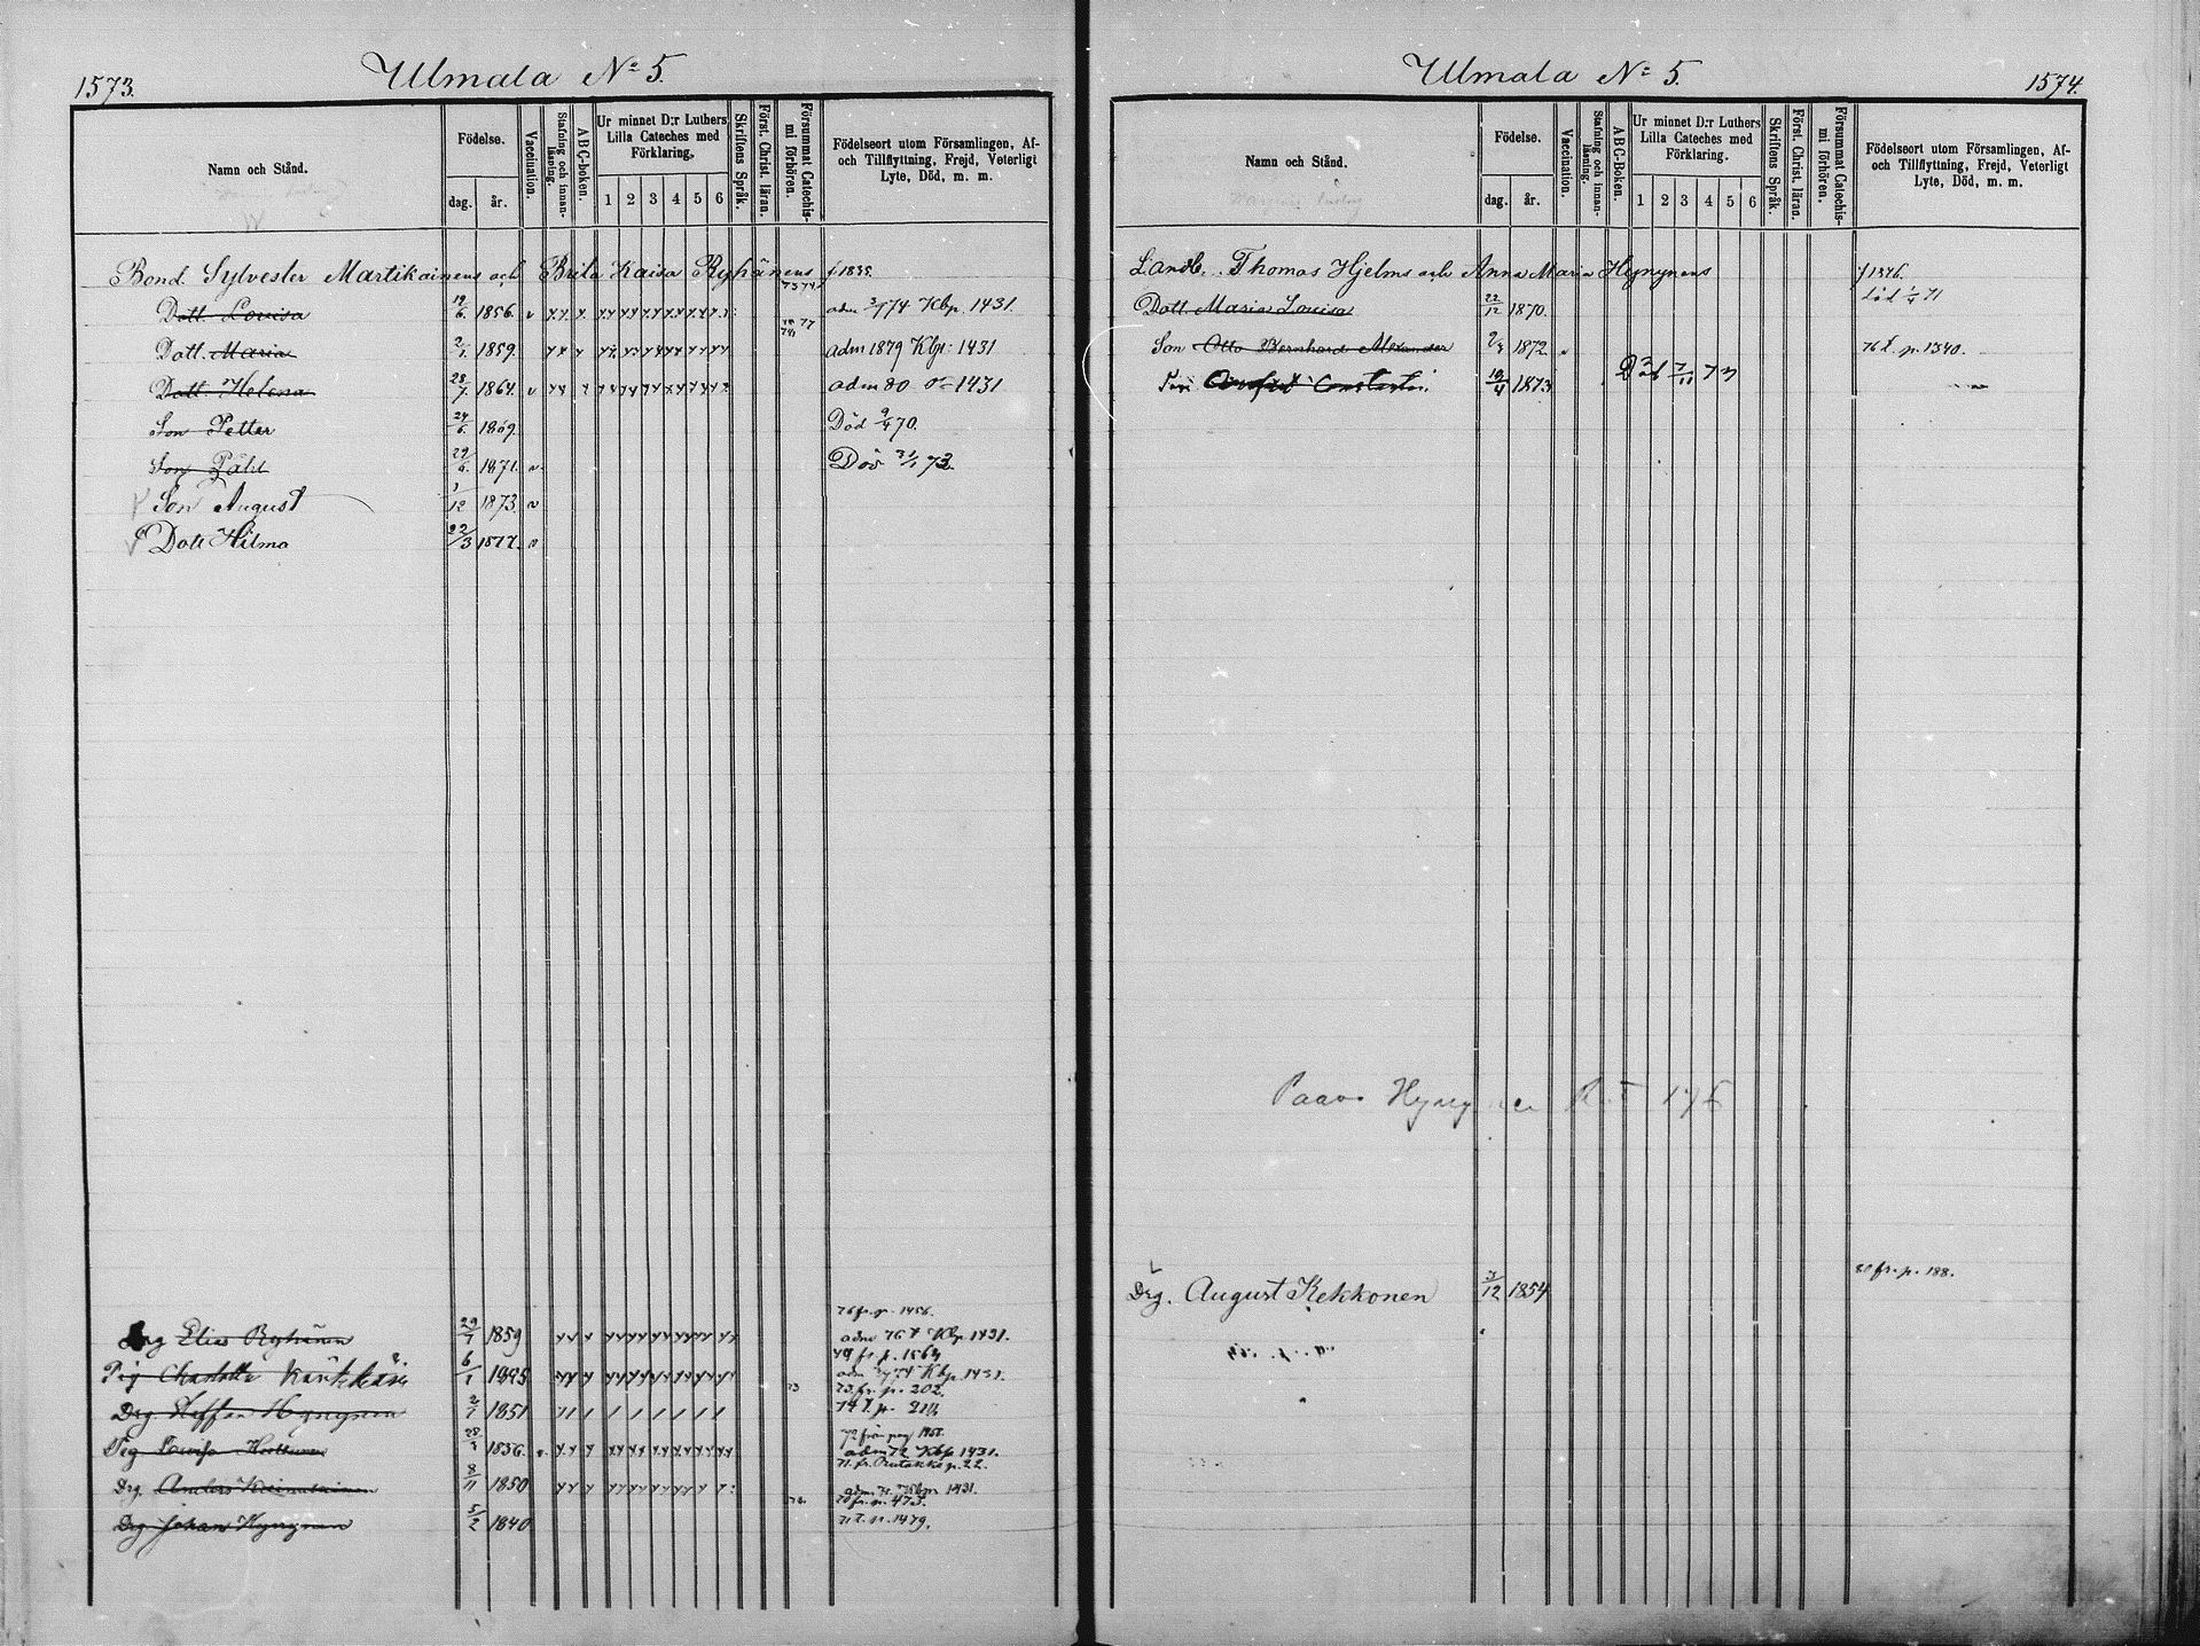 1573.
Ulmala No 5.
Namn och Stånd.
Födelse.
dag.
år.
Vaccination.
Stafning och innanläsning.
ABC-boken.
Ur minnet D:r Luthers Lilla Cateches med Förklaring.
1 2 3 4 5 6
Skriftens Språk.
Först. Christ. läran.
Försummat Catechismi förhören.
Födelseort utom Församlingen, Af- och Tillflyttning, Frejd, Veterligt Lyte, Död, m. m.
Bond. Sylvester Martikainens och Brita Kaisa Ryhänens f 1835.
Dott. Louisa 19/6 1856. v adm 74 Kbp. 1431.
Dott. Maria 2/1 1859. 77 adm 1879 Kbp: 1431
Dott. Helena 28/7 1864. v adm 80 1431
Son Petter 24/6 1869. Död 9/4 70.
Son 29/6 1871. v Död 73.
Son August 1/12 1873. v
Dott Hilma 22/3 1877. v
76 fr. p. 1456.
Drg Elias Ryhänen 29/1 1859 adm 76 Kbp 1431.
fr. p. 1564
Pig Charlotta 6/1 adm Kbp 1431.
73 fr. p. 202.
Drg. Staffan Hynynen 2/1 1851 73 74 t. p.
72 från pag
Pig Lovisa 1856. v. adm 72 Kbp 1431.
71. fr. p. 22.
Drg. Anders 8/11 1850 adm Kbp 1431.
70 fr. p. 473.
Drg Johan Hynynen 5/2 1840 71 t. p. 1479.
Ulmala No 5.
1574.
Namn och Stånd.
Födelse.
dag.
år.
Vaccination.
Stafning och innanläsning.
ABC-Boken.
Ur minnet D:r Luthers Lilla Cateches med Förklaring.
1 2 3 4 5 6
Skriftens Språk.
Först. Christ. läran.
Försummat Catechismi förhören.
Födelseort utom Församlingen, Af- och Tillflyttning, Frejd, Veterligt Lyte, Död, m. m.
Landb. Thomas Hjelms och Anna Maria Hynynens f 1346.
Dott. Maria Lovisa 22/12 1870. död 1/4 71
Son Otto Bernhard Alexander 1872. v 76 t. p. 1340.
Son Constantin. 19/4 1873 Död 7/11 73
Paavo Hynynen
Drg. August Kekkonen 3/12 1854 80 fr. p. 188.